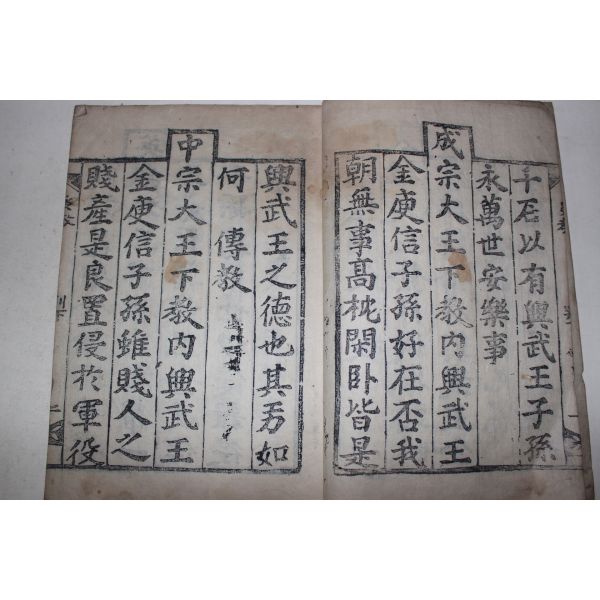 千石以有興武王子孫
永萬世安樂事
成宗大王下教內興武王
金庾信子孫好在否我
朝無事高枕閑卧皆是
興武王之德也其
如
何 傳教
中宗大王下教內興武王
金庾信子孫雖賤人之
賤産是良置侵於軍役